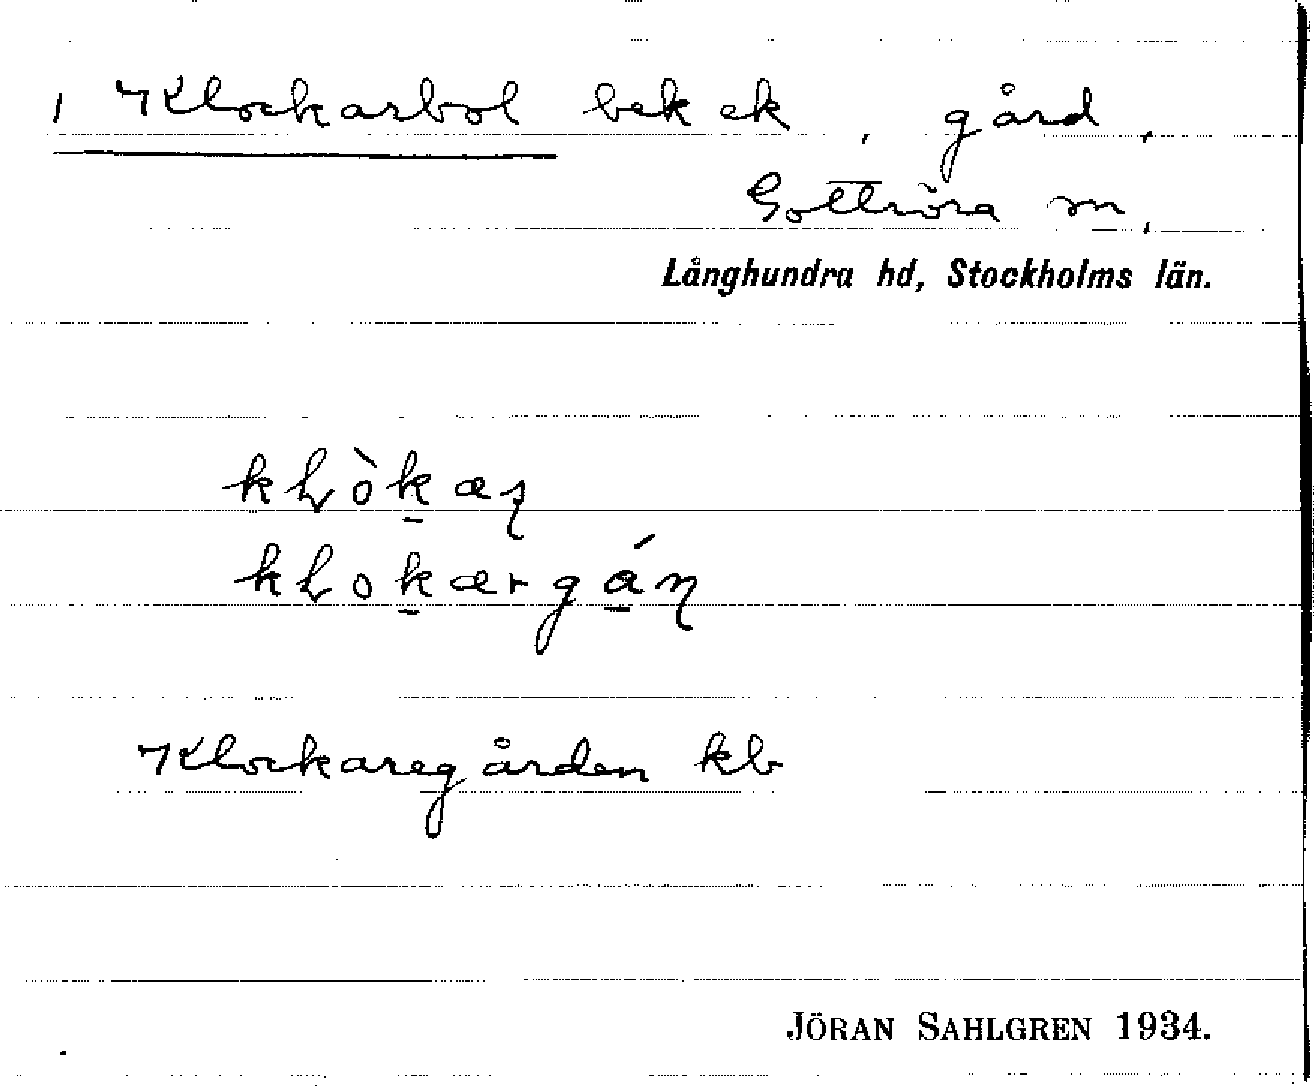 1 Klockarbol bek ek, gård,
Gottröra sn,
Långhundra hd, Stockholms län.
kɫòk̲aʂ
kɫok̲args̲án
Klockaregården kb
JÖRAN SAHLGREN 1934.